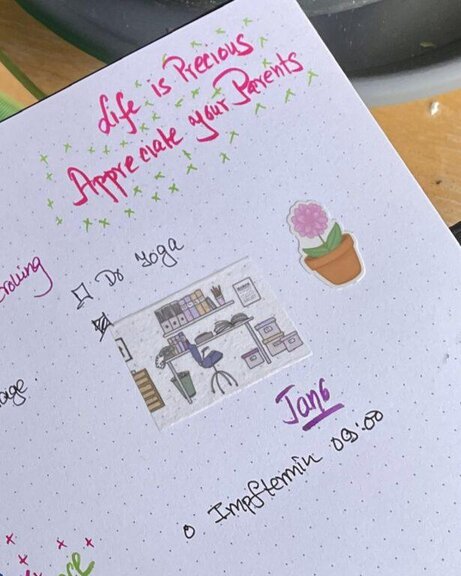 Life is Precious
Appreciate your Parents
Do Yoga
Jan 6
Impftermin 09:00